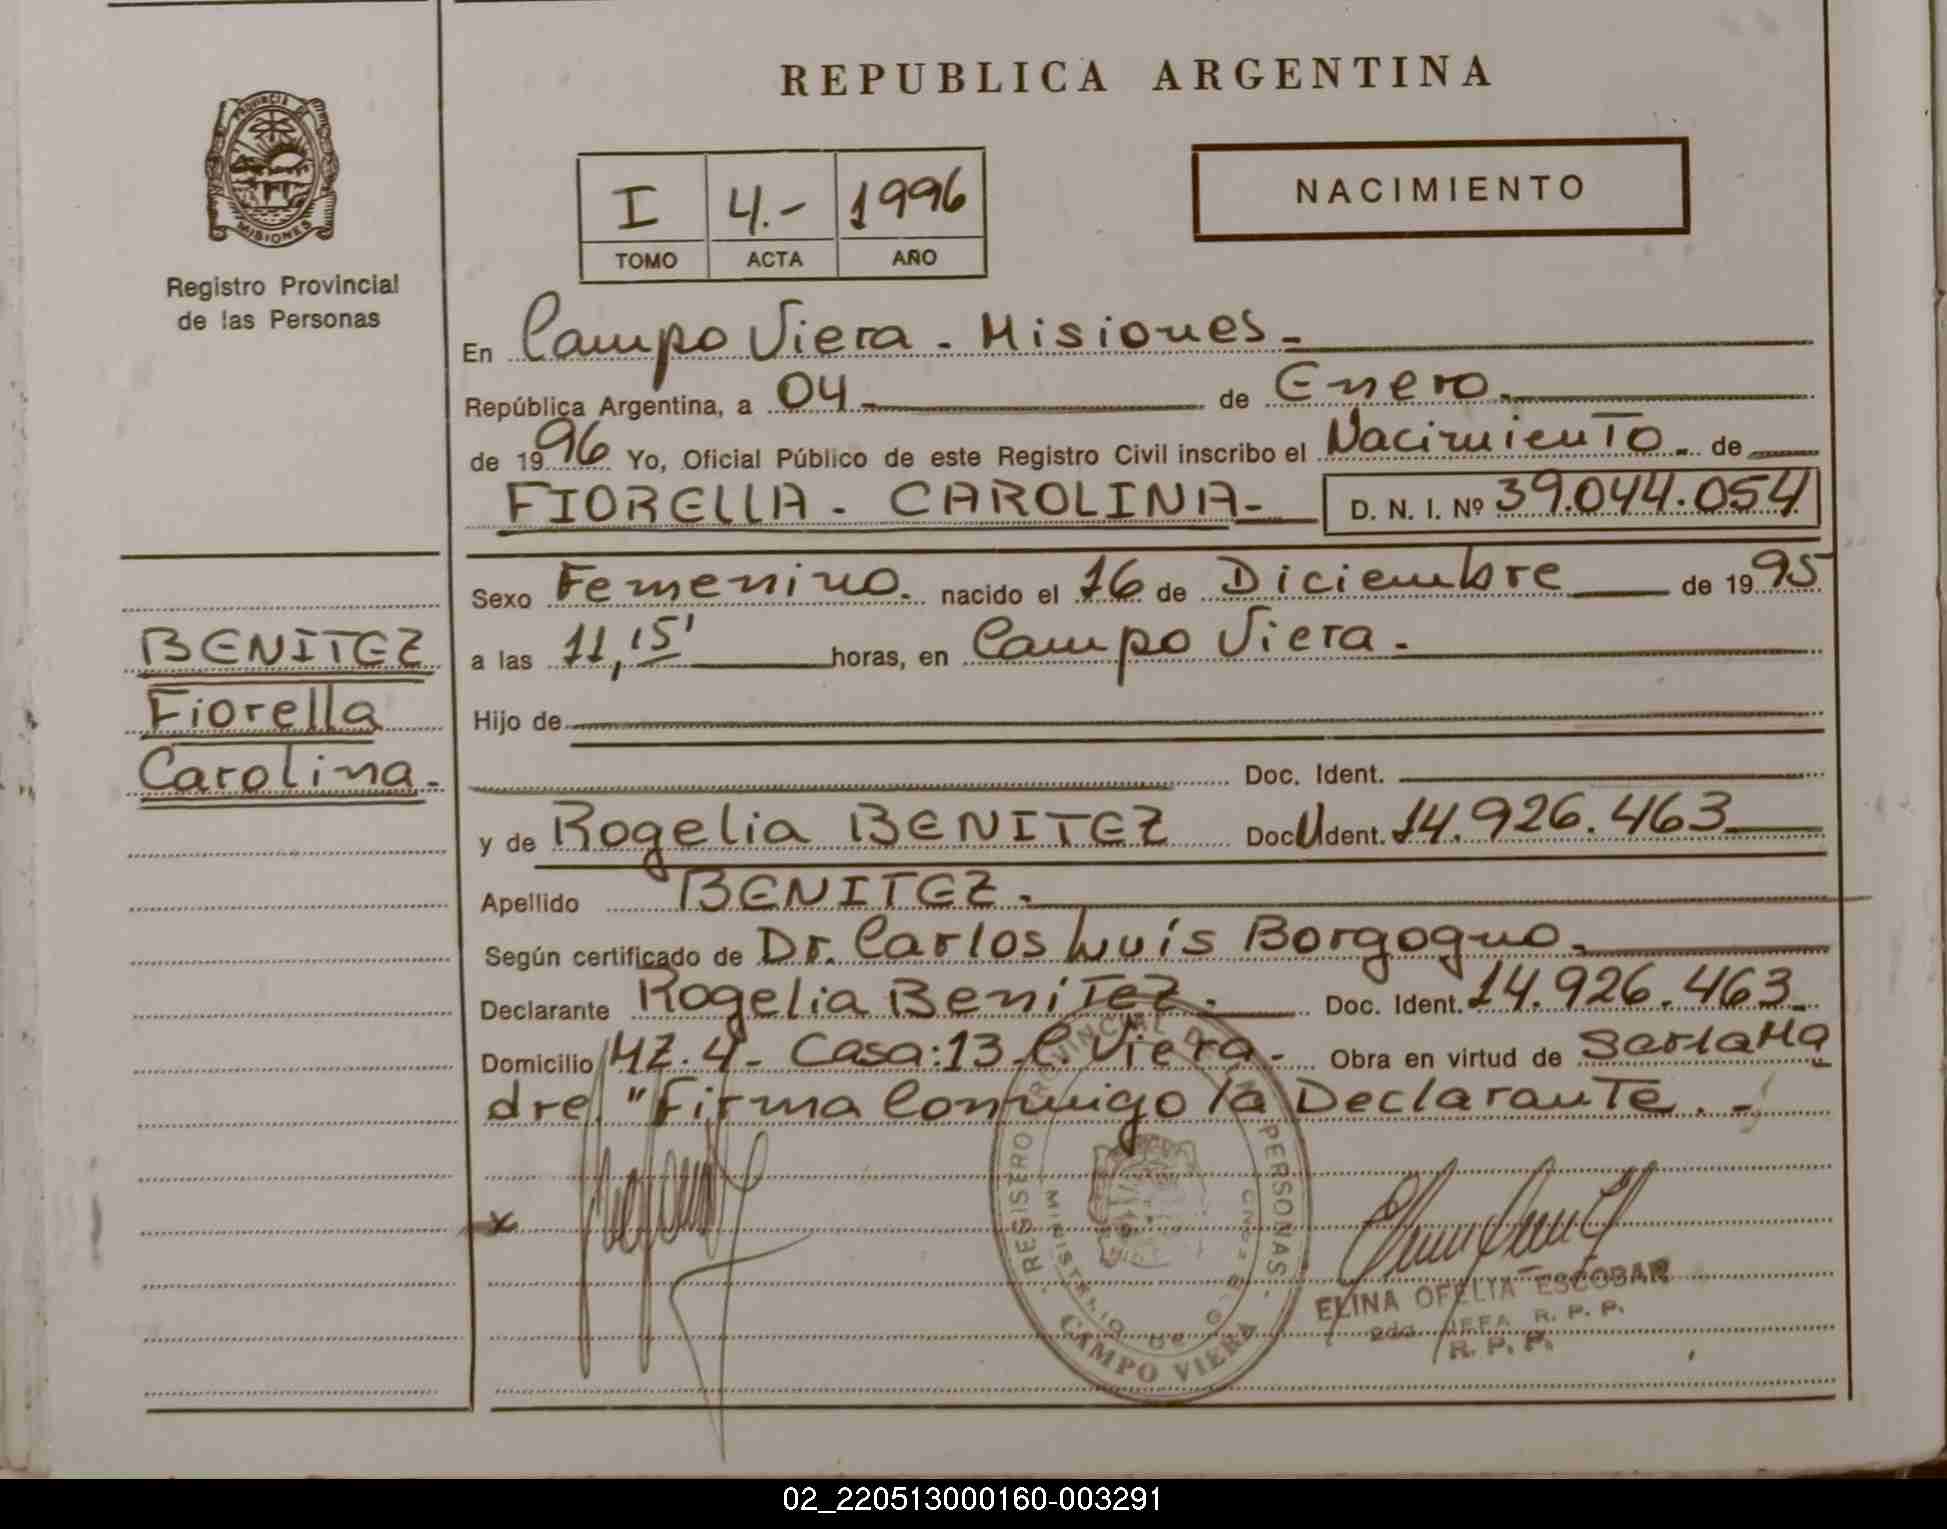 REPUBLICA ARGENTINA
PROVINCIA DE
MISIONES
Registro Provincial
de las Personas
I 4.- 1996
TOMO ACTA AÑO
NACIMIENTO
En Campo Viera - Misiones.-
República Argentina, a 04 de Enero
de 1996 Yo, Oficial Público de este Registro Civil inscribo el Nacimiento de
FIORELLA - CAROLINA- D. N. I. Nº 39.044.054
Sexo Femenino. nacido el 16 de Diciembre de 1995
BENITEZ
Fiorella
Carolina.-
a las 11,15' horas, en Campo Viera.-
Hijo de
Doc. Ident.
y de Rogelia BENITEZ Doc U Ident. 14.926.463
Apellido BENITEZ.
Según certificado de Dr. Carlos Luis Borgogno.
Declarante Rogelia Benitez. Doc. Ident. 14.926.463
Domicilio MZ.4- Casa:13-C. Viera.- Obra en virtud de Ser la Ma
dre. "Firma Conmigo la Declarante. -
x
PERSONAS
CAMPO VIERA
ELINA OFELIA ESCOBAR
2da JEFA R. P. P.
R. P. P.
02_220513000160-003291